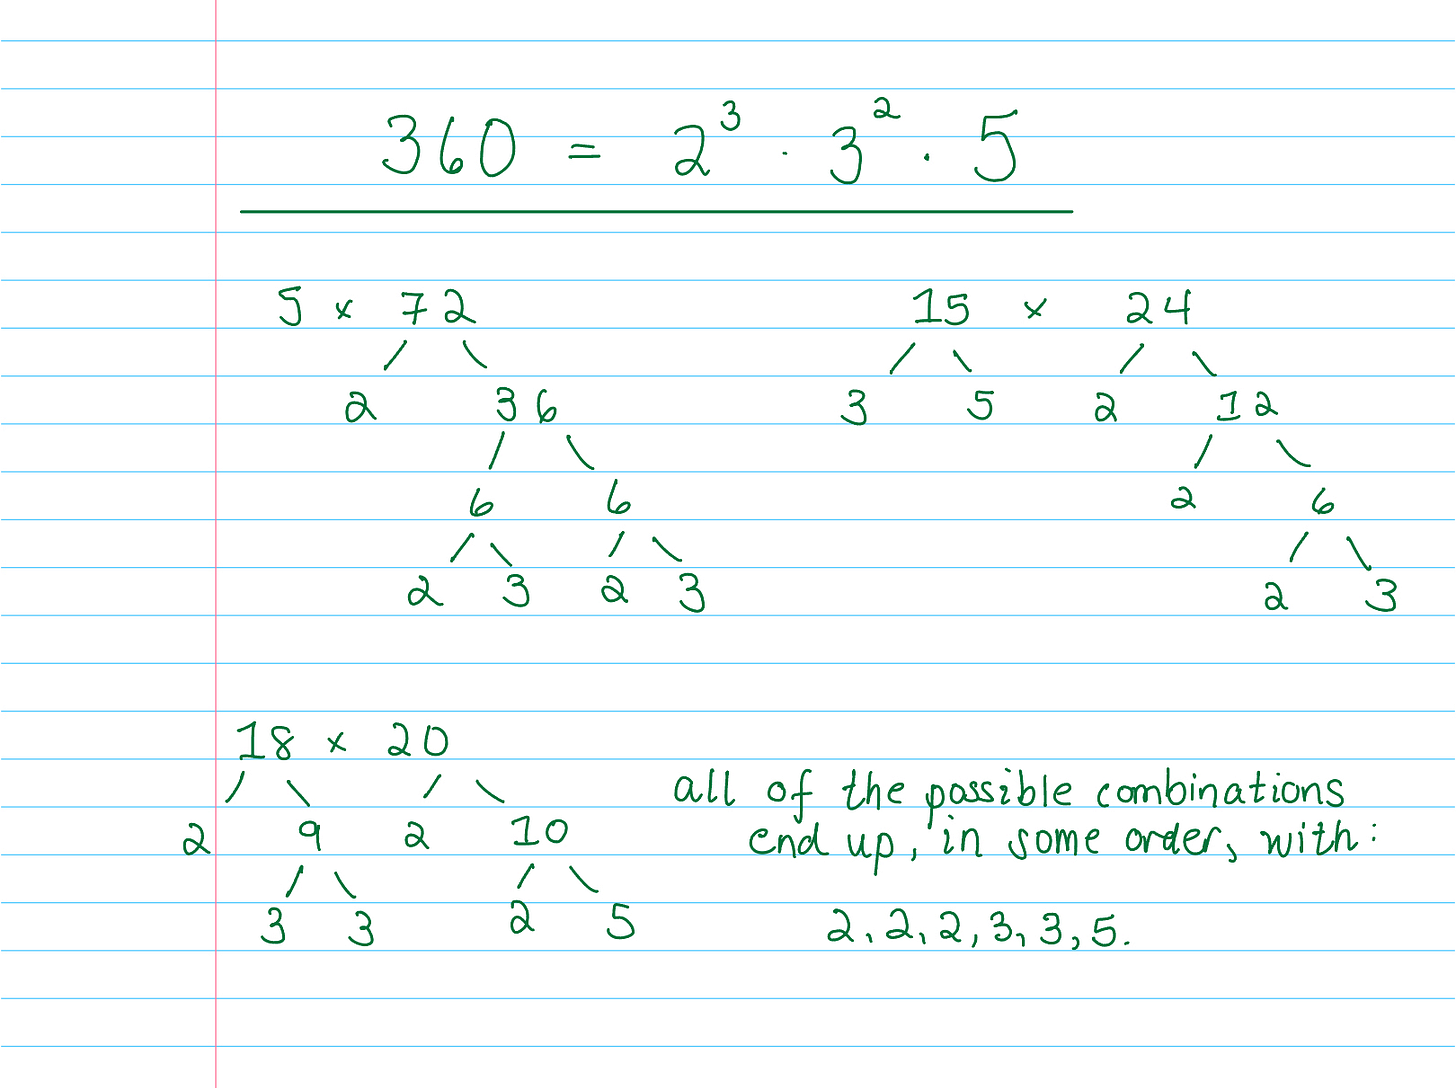 360 = 2³ · 3² · 5
5 × 72
2 36
6 6
2 3 2 3
15 × 24
3 5 2 12
2 6
2 3
18 × 20
2 9 2 10
3 3 2 5
all of the possible combinations
end up, in some order, with:
2, 2, 2, 3, 3, 5.